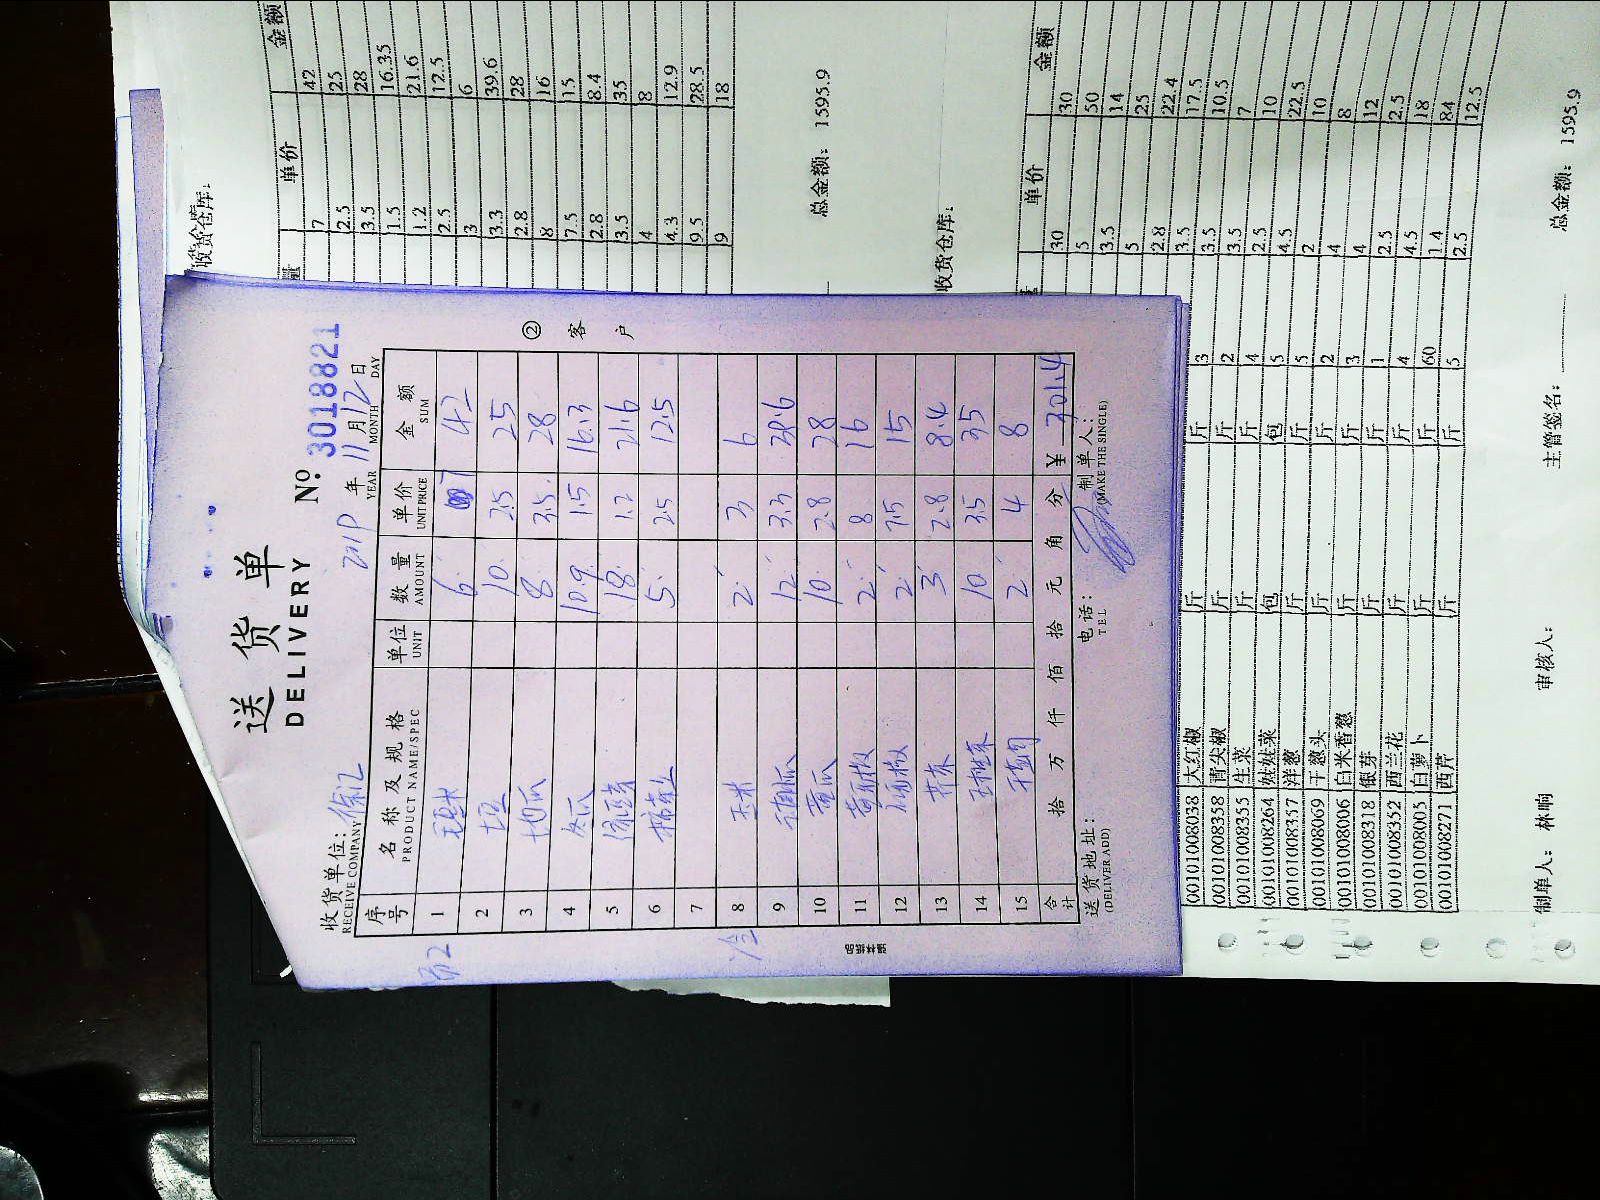 送货单
DELIVERY
No: 3018821
收货单位: 徐汇
RECEIVE COMPANY
2019 年 11 月 12 日
YEAR MONTH DAY
序号 名称及规格 单位 数量 单价 金额
PRODUCT NAME/SPEC UNIT AMOUNT UNIT PRICE SUM
1 6 7 42
2 土豆 10 2.5 25
3 8 3.5 28
4 冬瓜 10.9 1.5 16.3
5 18 1.2 21.6
6 5 2.5 12.5
7
8 玉米 2 3 6
9 12 3.3 39.6
10 黄瓜 10 2.8 28
11 2 8 16
12 2 7.5 15
13 3 2.8 8.4
14 10 3.5 35
15 2 4 8
合计 拾 万 仟 佰 拾 元 角 分 ¥ 301.4
送货地址: 电话: 制单人:
(DELIVER ADD) TEL (MAKE THE SINGLE)
② 客户
收货仓库:
量 单价 金额
7 42
2.5 25
3.5 28
1.5 16.35
1.2 21.6
2.5 12.5
3 6
3.3 39.6
2.8 28
8 16
7.5 15
2.8 8.4
3.5 35
4 8
4.3 12.9
9.5 28.5
9 18
总金额: 1595.9
收货仓库:
单价 金额
30 30
5 50
3.5 14
5 25
2.8 22.4
3.5 17.5
00101008038 大红椒 斤 斤 3 3.5 10.5
00101008358 青尖椒 斤 斤 2 3.5 7
00101008355 生菜 斤 斤 4 2.5 10
00101008264 娃娃菜 包 包 5 4.5 22.5
00101008357 洋葱 斤 斤 5 2 10
00101008069 干葱头 斤 斤 2 4 8
00101008006 白米香葱 斤 斤 3 4 12
00101008318 银芽 斤 斤 1 2.5 2.5
00101008352 西兰花 斤 斤 4 4.5 18
00101008005 白萝卜 斤 斤 60 1.4 84
00101008271 西芹 斤 斤 5 2.5 12.5
总金额: 1595.9
制单人: 林响 审核人: 主管签名: